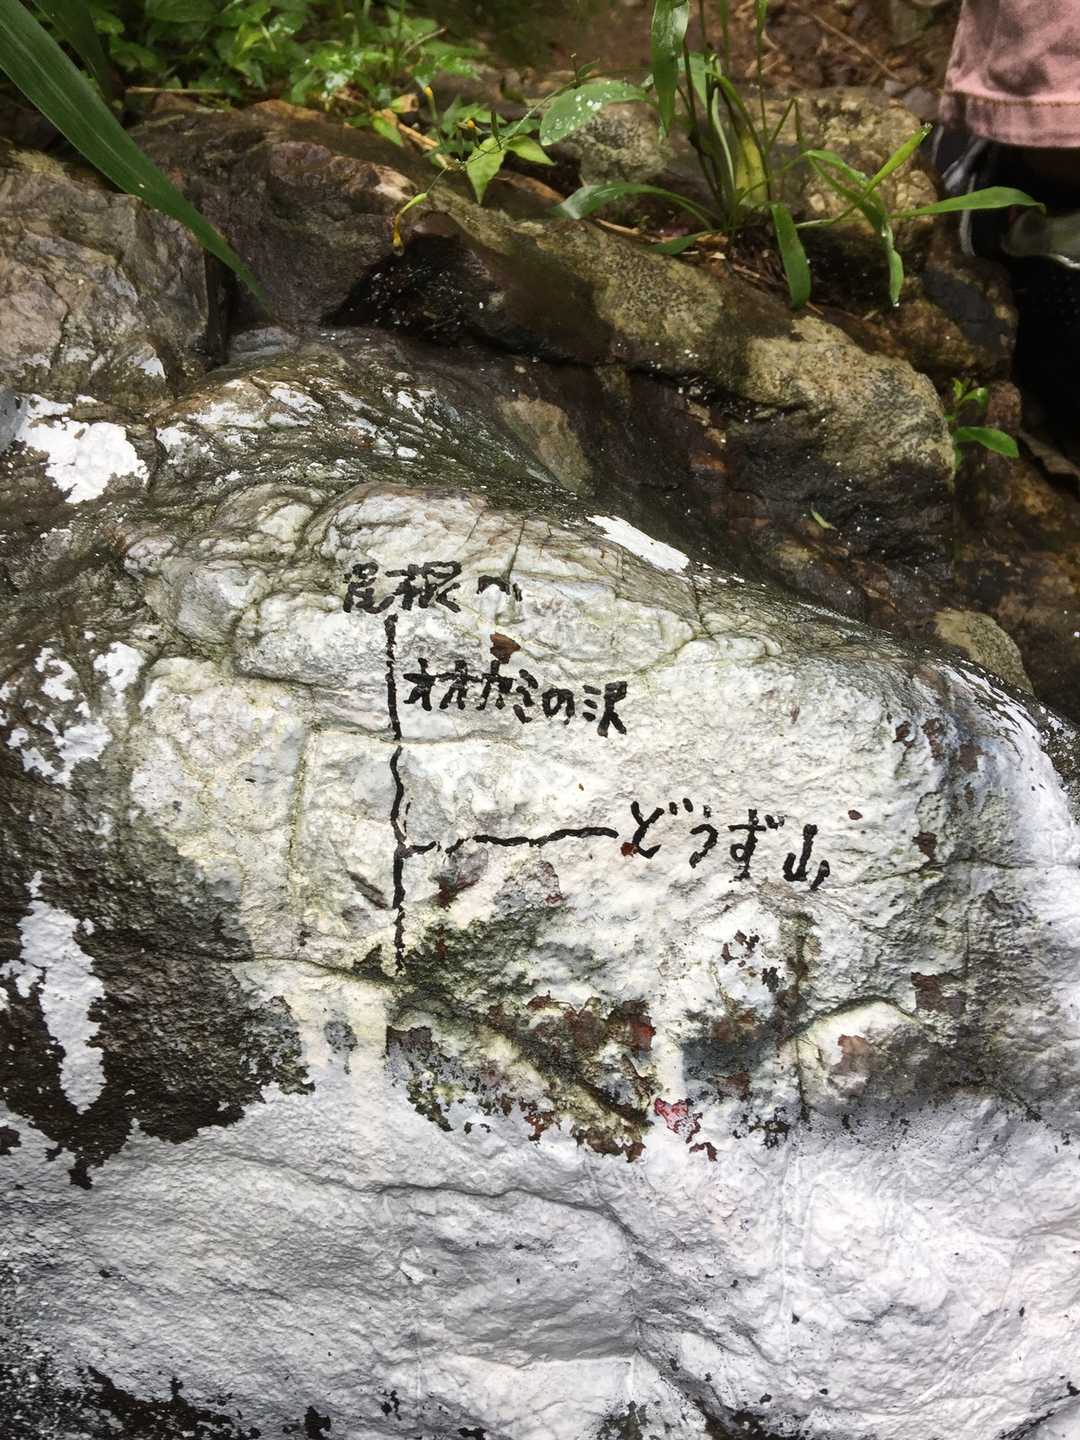 尾根へ
オオカミの沢
どうず山